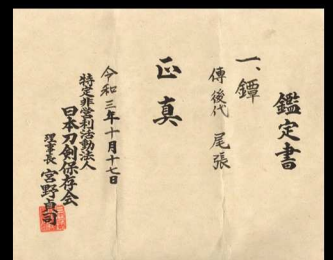 鑑定書
一、鐔
傳後代 尾張
正真
令和三年十月十七日
特定非営利活動法人
日本刀剣保存会
理事長 宮野貞司